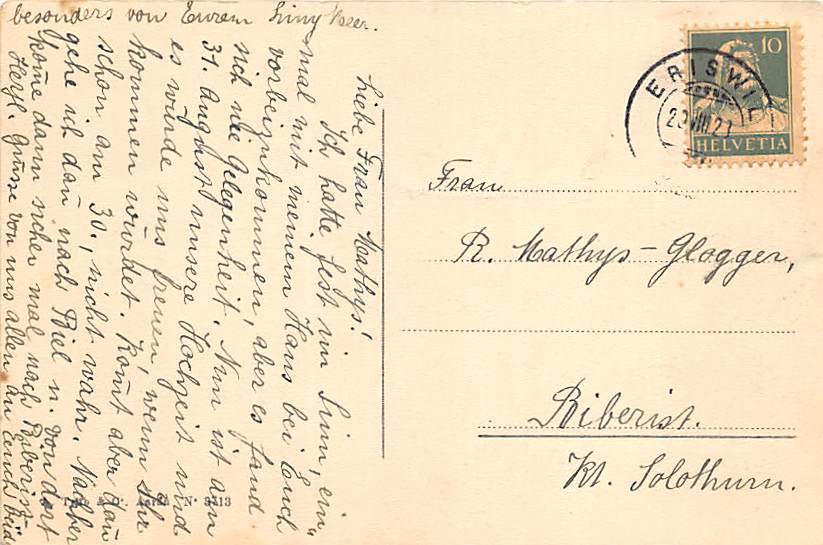 Liebe Frau Mathys!
Ich hatte fest im Sinn, ein-
mal mit meinem Hans bei Euch
vorbeizukommen, aber es fand
sich nie Gelegenheit. Nun ist am
31. August unsere Hochzeit und
es würde uns freuen, wenn Ihr
kommen würdet. Komt aber dan
schon am 30., nicht wahr. Nachher
gehe ich dan nach Biel u. von dort
kome dann sicher mal nach Biberist.
Herzl. Grüsse von uns allen an Euch beide
besonders von Eurem
10
HELVETIA
ERISWIL
VIII
Frau
R. Mathys-Glogger,
Biberist.
Kt. Solothurn.
Nº 3713